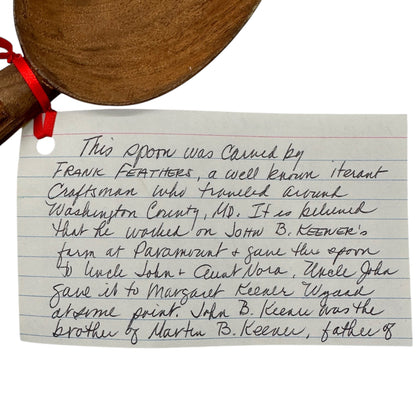 This spoon was carved by
FRANK FEATHERS, a well known iterant
Craftsman who traveled around
Washington County, MD. It is believed
that he worked on JOHN B. KEENER'S
farm at Paramount & gave this spoon
to Uncle John & Aunt Nora. Uncle John
gave it to Margaret Keener Wyand
at some point. John B. Keener was the
brother of Martin B. Keener, father of